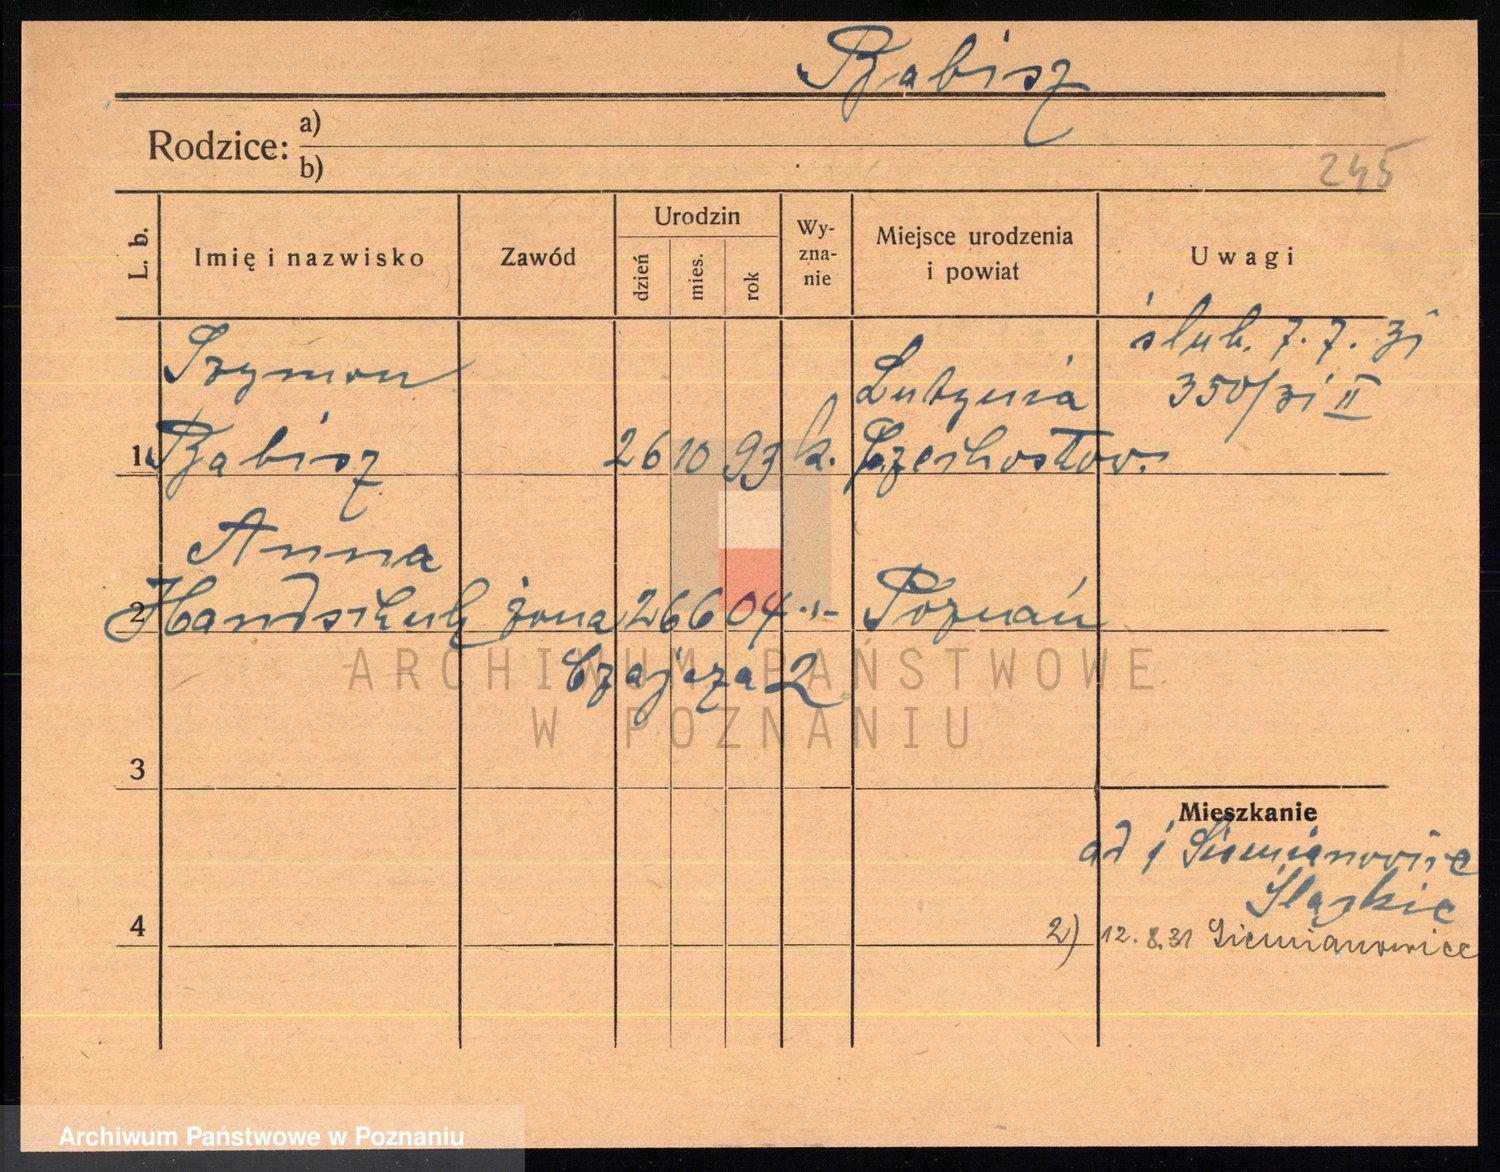 Babisz
Rodzice:
a)
b)
245
L. b.
Imię i nazwisko
Zawód
Urodzin
dzień
mies.
rok
Wy-
zna-
nie
Miejsce urodzenia
i powiat
Uwagi
ślub. 7.7.31
350/31 II
Szymon
Lutynia
1 Babisz 26 10 93 k. Czechosłow.
Anna
2 żona 26 6 04 -"- Poznań
Czajcza 2
3
Mieszkanie
ad 1 Siemianowice
Śląskie
4
2) 12.8.31 Siemianowice
ARCHIWUM PAŃSTWOWE
W POZNANIU
Archiwum Państwowe w Poznaniu